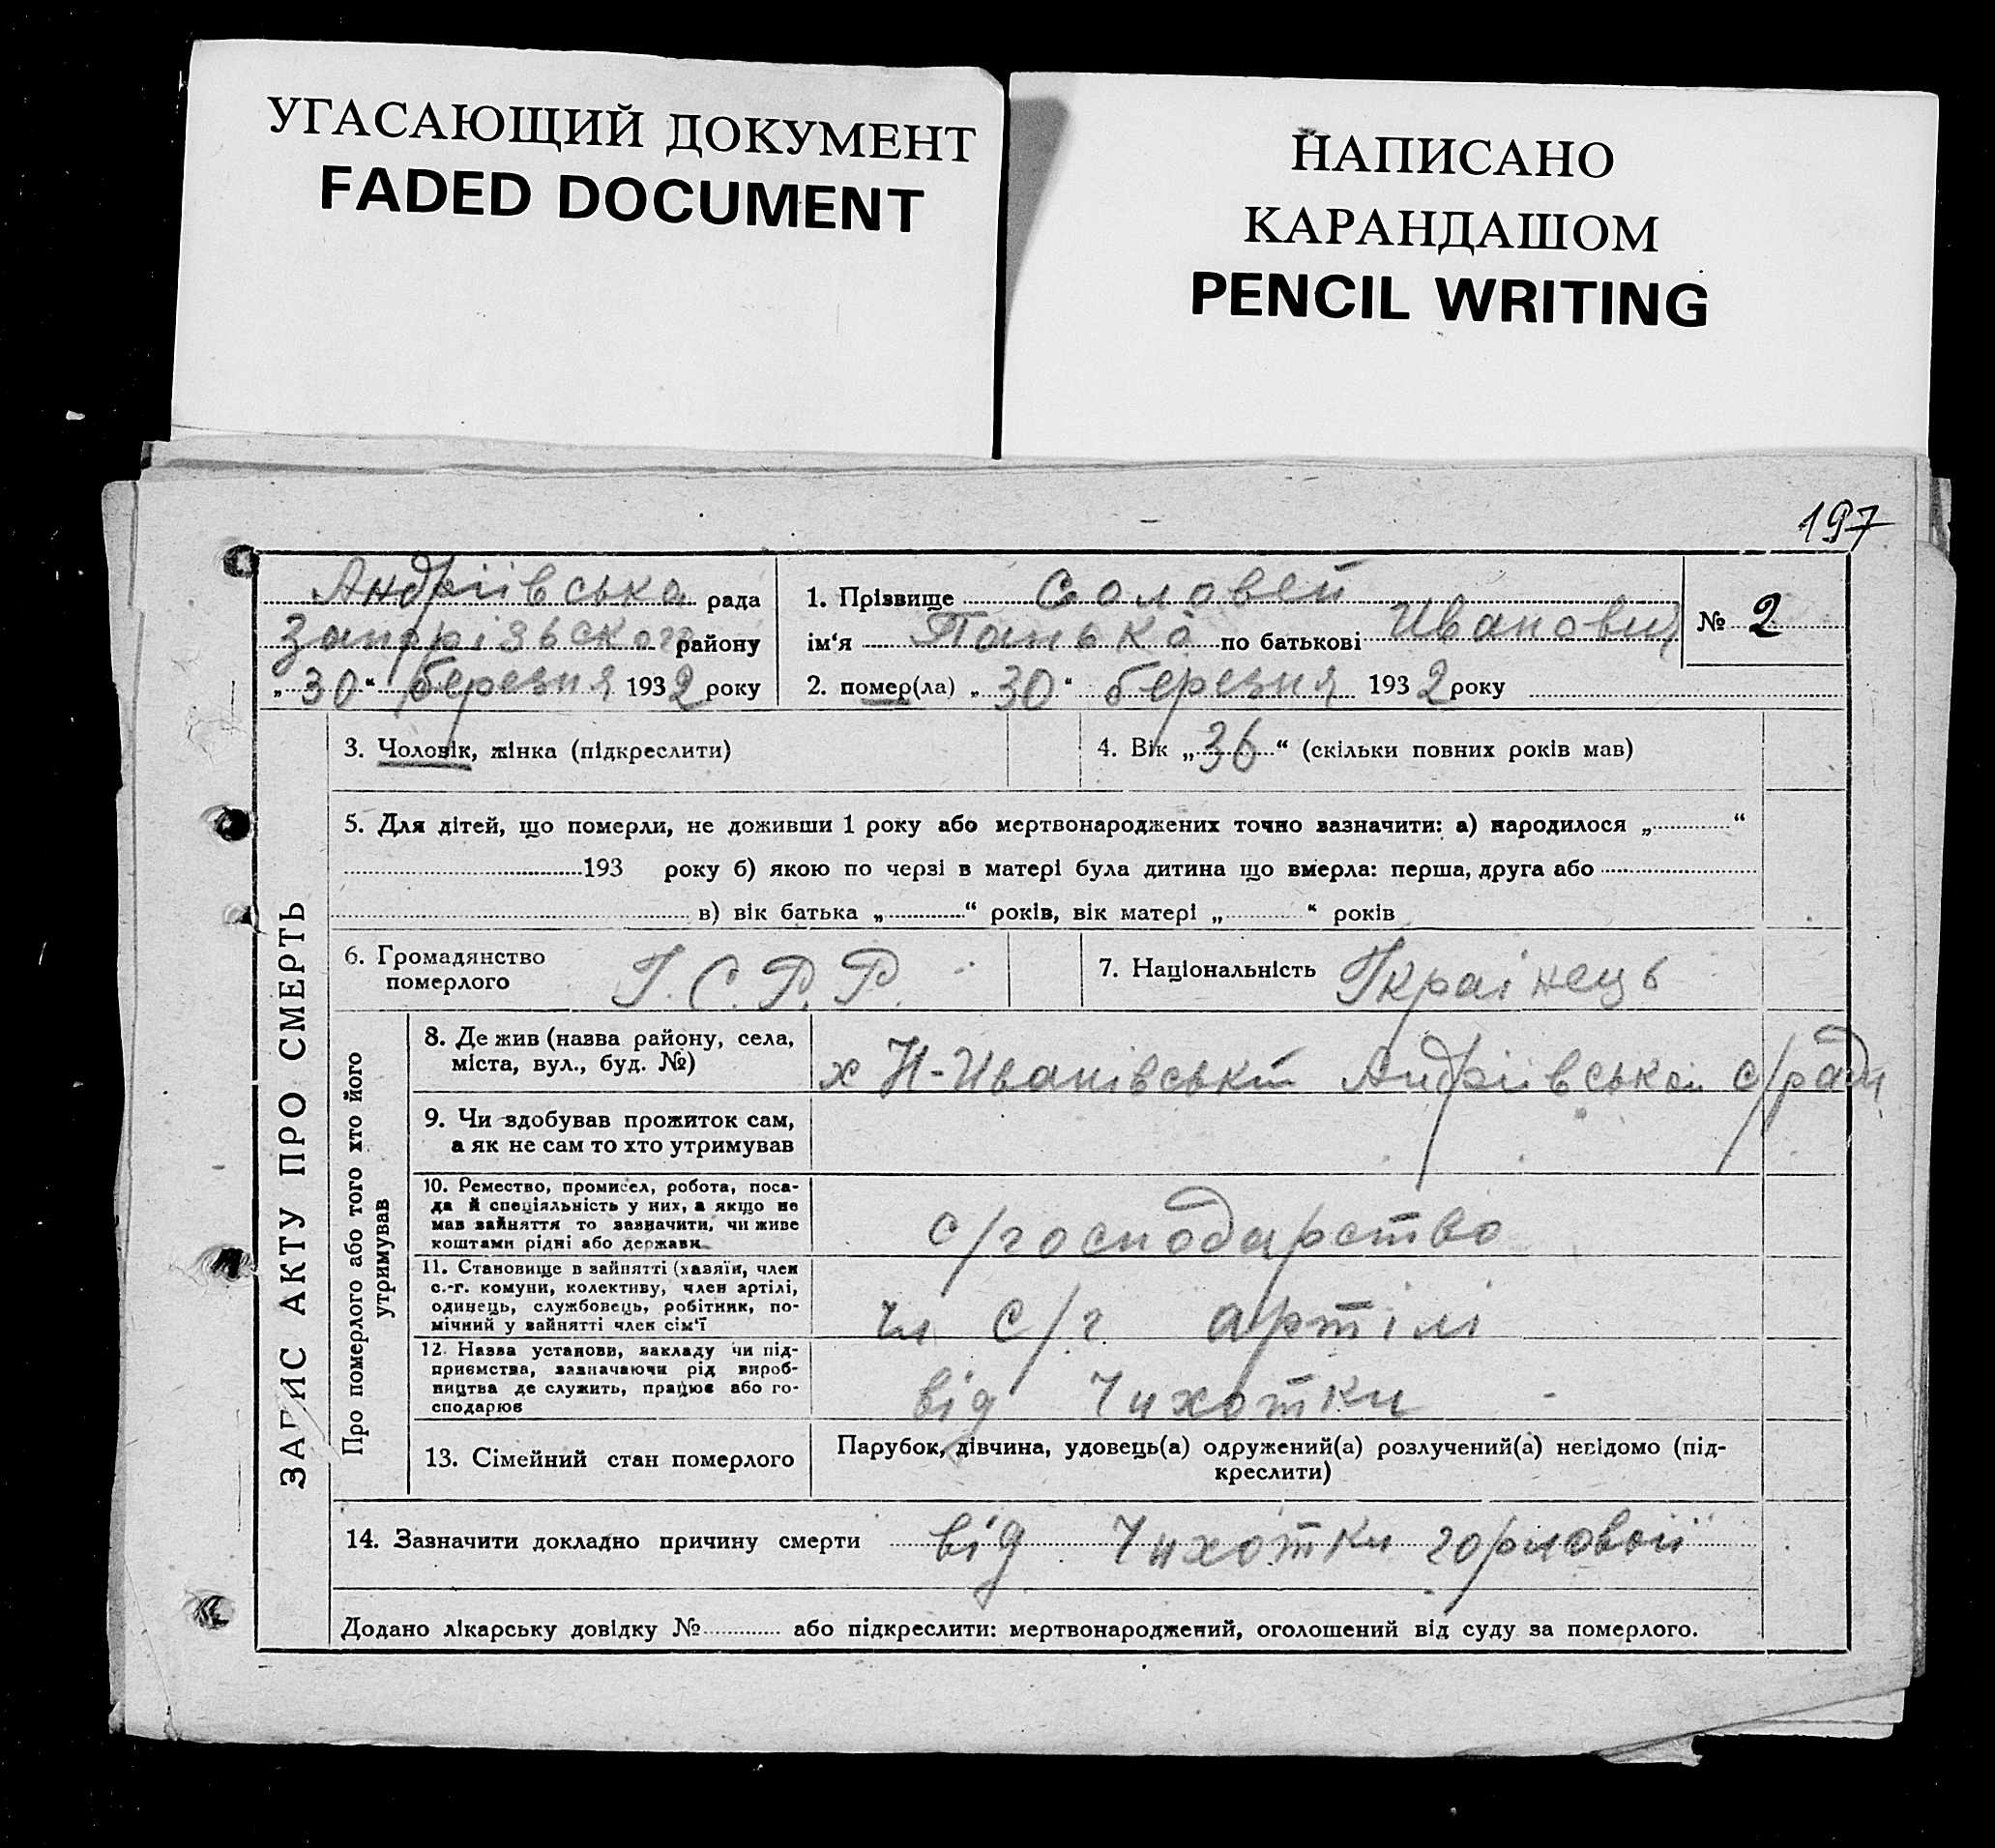 УГАСАЮЩИЙ ДОКУМЕНТ
FADED DOCUMENT
НАПИСАНО
КАРАНДАШОМ
PENCIL WRITING
197
Андріівська рада
Запорізьского району
„30“ березня 1932 року
1. Прізвище Соловей
ім‘я Панько по батькові Иванович
№ 2
2. помер(ла) „30“ березня 1932 року
3. Чоловік, жінка (підкреслити)
4. Вік „36“ (скільки повних років мав)
5. Для дітей, що померли, не доживши 1 року або мертвонароджених точно зазначити: а) народилося „ “
193 року б) якою по черзі в матері була дитина що вмерла: перша, друга або
в) вік батька „ “ років, вік матері „ “ років
6. Громадянство
померлого У.С.Р.Р.
7. Національність Українець
ЗАПИС АКТУ ПРО СМЕРТЬ
Про померлого або того хто його
утримував
8. Де жив (назва району, села,
міста, вул., буд. №)
х Н-Иванівській Андріівської с/ради
9. Чи здобував прожиток сам,
а як не сам то хто утримував
10. Ремество, промисел, робота, поса-
да й спеціяльність у них, а якщо не
мав зайняття то зазначити, чи живе
коштами рідні або держави
с/господарство
11. Становище в зайнятті (хазяїн, член
с.-г. комуни, колективу, член артілі,
одинець, службовець, робітник, по-
мічний у зайнятті член сім‘ї
чл с/г. артілі
12. Назва установи, закладу чи під-
приємства, зазначаючи рід вироб-
ництва де служить, працює або го-
сподарює
від Чихотки
13. Сімейний стан померлого
Парубок, дівчина, удовець(а) одружений(а) розлучений(а) невідомо (під-
креслити)
14. Зазначити докладно причину смерти від Чихотки горловой
Додано лікарську довідку № або підкреслити: мертвонароджений, оголошений від суду за померлого.